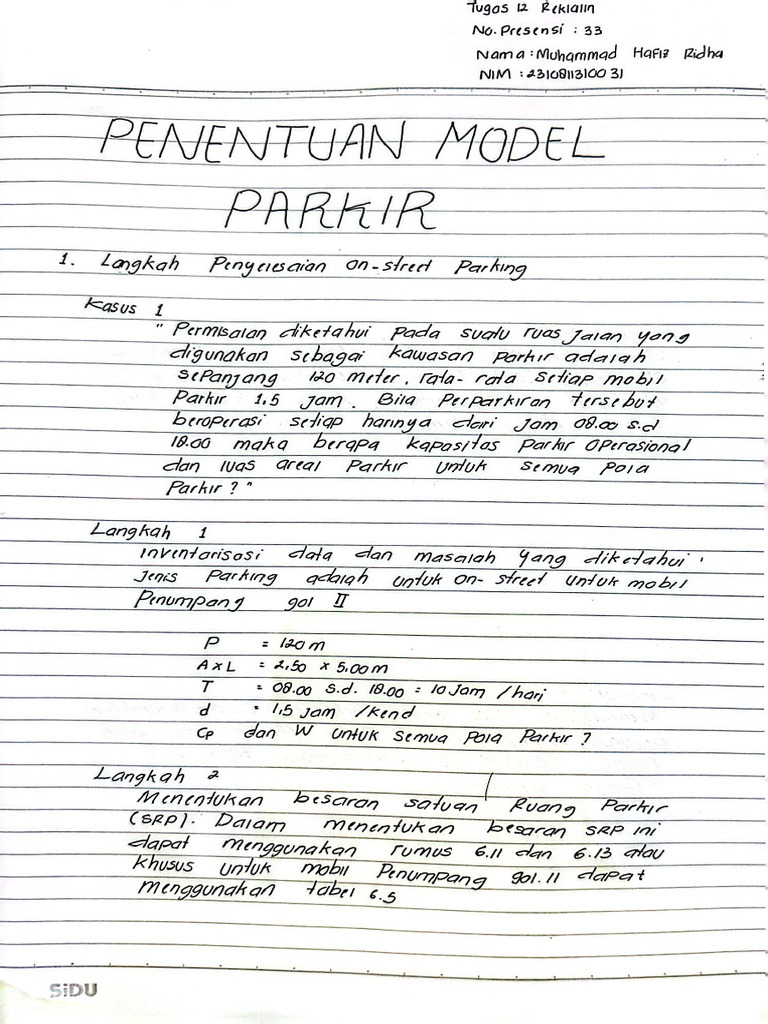 Tugas 12 Reklalin
No. Presensi : 33
Nama : Muhammad Hafiz Ridha
NIM : 23108113100 31
PENENTUAN MODEL
PARKIR
1. Langkah Penyelesaian on-street Parking
Kasus 1
" Permisalan diketahui pada suatu ruas jalan yang
digunakan sebagai kawasan parkir adalah
sepanjang 120 meter, rata-rata setiap mobil
Parkir 1.5 jam. Bila Perparkiran tersebut
beroperasi setiap harinya dari jam 08.00 s.d
18.00 maka berapa kapasitas parkir operasional
dan luas areal Parkir untuk semua pola
Parkir ? "
Langkah 1
Inventarisasi data dan masalah yang diketahui.
jenis Parking adalah untuk on-street untuk mobil
Penumpang gol II
P = 120 m
A x L = 2,50 x 5.00 m
T = 08.00 s.d. 18.00 = 10 jam / hari
d = 1,5 jam / kend
Cp dan W untuk semua pola Parkir ?
Langkah 2
Menentukan besaran satuan Ruang Parkir
(SRP). Dalam menentukan besaran SRP ini
dapat menggunakan rumus 6.11 dan 6.13 atau
khusus untuk mobil Penumpang gol. 11 dapat
menggunakan tabel 6.5
SiDU